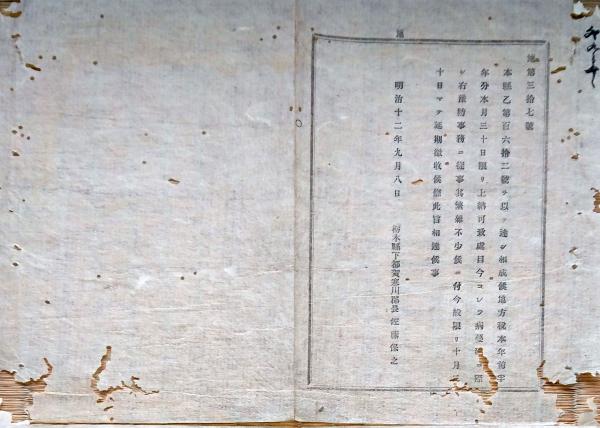 地
地第三拾七號
本縣乙第百六拾二號ヲ以テ達シ相成候地方税本年前半
年分本月三十日限リ上納可致處目今コレラ病蔓 際
シ右豫防事務ニ從事其繁雜不少候ニ付今般限リ十月三
十日マテ延期徴收候條此旨相達候事
明治十二年九月八日
栃木縣下都賀寒川郡長 保之